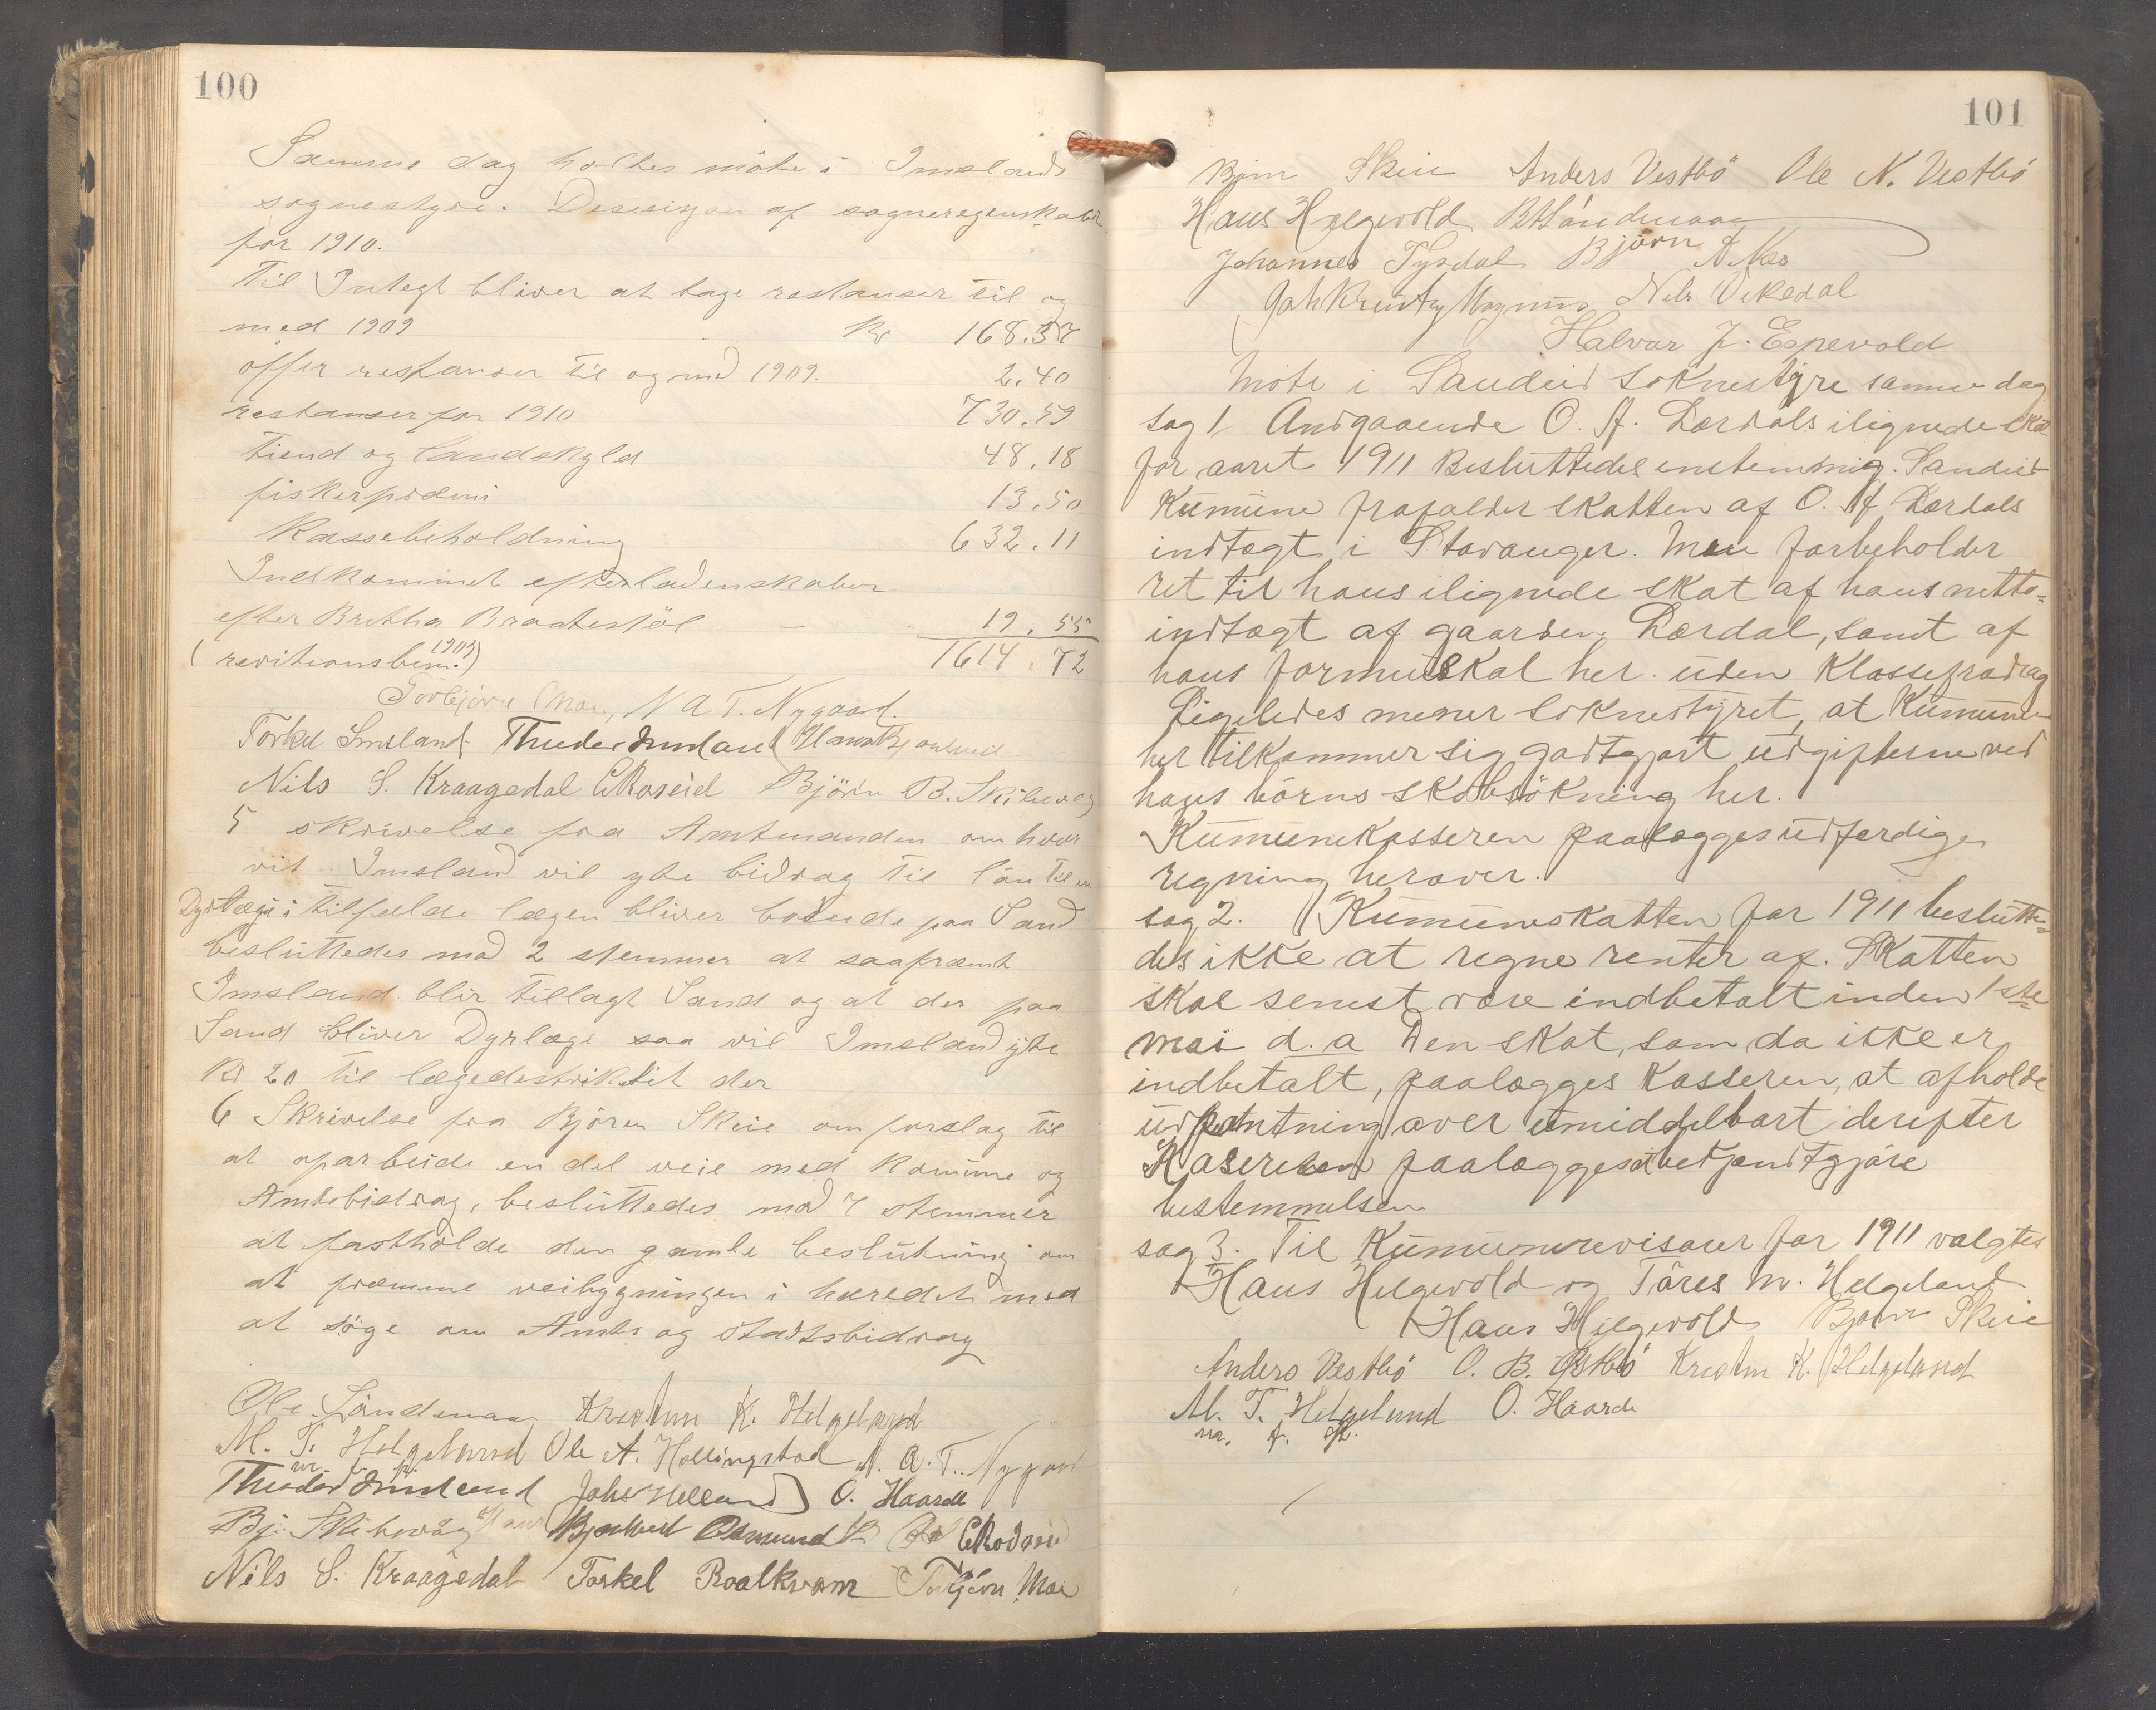 100
Samme dag holtes möte i Imslands
sognestyre. Desecisjon af sogneregenskaber
for 1910.
Til Integt bliver at tage restanser til og
med 1909 Kr 168.37
offer restanser til og med 1909. 2.40
restanser for 1910 730.59
Tiend og Landskyld 48.18
fisker 13.50
Kassebeholdning 632.11
Indkommet efterladenskaber
efter Bretha Braatestöl - 19.55
(revitionsbem. 1909) 1614.72
Torbjörn Moe, N A T. Nygaard.
Torkel Imsland Theodor Imsland Hans Bjontveit
Nils S. Kraagedal E Roseid Björn B. Skibevog
5 skrivelse fra Amtmanden om hvor
vit Imsland vil yte bidrag til lön til en
Dyrlæge i tilfælde lægen bliver boende paa Sand
besluttedes med 2 stemmer at saafræmt
Imsland blir tillagt Sand og at der paa
Sand bliver Dyrlæge saa vil Imsland yte
Kr 20 til lægedestriktet der
6 Skrivelse fra Björn Skeie om forslag til
at oparbeide en del veie med Komune og
Amtsbidrag, besluttedes med 7 stemmer
at fastholde den gamle beslutning om
at fræmme veibygningen i heredet med
at söge om Amts og Statsbidrag
Ole Söndenaa Kristen K. Helgeland
M. T. Helgeland Ole A. Hellingstad N. A. T. Nygaard
m. f. p.
Theodor Imsland Johs Helland O. Haarde
Bj. Skibevåg Hans Bjontveit Osmund E Roseid
Nils S. Kraagedal Torkel Roalkvam Torbjörn Moe
101
Björn Skeie Anders Vestbö Ole N. Vestbö
Hans Helgevold R Söndenaa
Johannes Tysdal Björn A Nes
Joh Kristy Magnus Nils Vikedal
Halvar J. Espevold
Möte i Sandeid Soknestyre samme dag
sag 1 Andgaaende O. A. Lærdals ilignede skat
for aaret 1911 Besluttedes enstemmig. Sandeid
Kumune frafalder skatten af O. A Lærdals
indtægt i Stavanger. Men forbeholder
ret til hans ilignede skat af hans netto-
indtægt af gaarden Lærdal, samt af
hans formueskat her uden Klassefradrag
Ligeledes mener Soknestyret, at Kumunen
her tilkommer sig godtgjort udgifterne ved
hans börns skolesökning her.
Kumunekasseren paalægges udfærdige
regning herover.
sag 2. Kumuneskatten for 1911 beslutte-
des ikke at regne renter af. Skatten
skal senest være indbetalt inden 1ste
mai d. a Den skat, som da ikke er
indbetalt, paalægges Kasseren, at afholde
udpantning over umiddelbart derefter
Kasereren paalægges at bekjendtgjöre
bestemmelsen
sag 3. Til Kumunerevisorer for 1911 valgtes
Hans Helgevold og Tåres M. Helgeland
Hans Helgevold Bjorn Skeie
Anders Vestbö O. B. Østbö Kristen K. Helgeland
M. T. Helgelund O. Haarde
m. f. p.